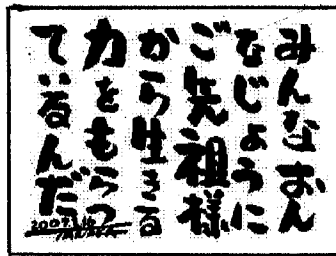 みんなおん
なじように
ご先祖様
から生きる
力をもらっ
ているんだ